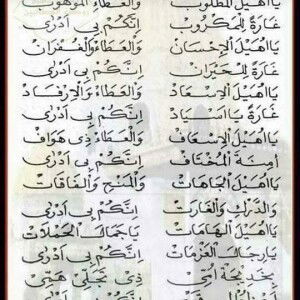 يَا اُهَيْلَ الْمَطْلُوْبِ وَالْعَطَاءِ الْمَوْهُوْبِ
غَارَةً لِلْمَكْرُوْبِ اِنَّكُمْ بِيْ اَدْرٰى
يَا اُهَيْلَ الْاِحْسَانِ وَالْعَطَاءِ وَالْغُفْرَانِ
غَارَةً لِلْحَيْرَانِ اِنَّكُمْ بِيْ اَدْرٰى
يَا اُهَيْلَ الْاِسْعَادِ وَالْعَطَاءِ وَالْاِرْفَادِ
غَارَةً يَا اَسْيَادِ اِنَّكُمْ بِيْ اَدْرٰى
يَا اُهَيْلَ الْاِسْعَافِ وَالْعَطَاءِ ذِيْ هَوَافْ
اَمِنَةَ الْمُخْتَافِ اِنَّكُمْ بِيْ اَدْرٰى
يَا اُهَيْلَ الْجَاهَاتِ وَالْمَنْحِ وَالْفَاقَاتِ
وَالدَّرَكِ وَالْغَارَتِ اِنَّكُمْ بِيْ اَدْرٰى
يَا اُهَيْلَ الْهَامَاتِ يَا جِمَالَ الْحَمْلَاتِ
يَا رِجَالَ الْعَزْمَاتِ اِنَّكُمْ بِيْ اَدْرٰى
بِخَدِيْجَةْ اُمِّيْ ذِيْ تَجَلِّيْ هَمِّيْ